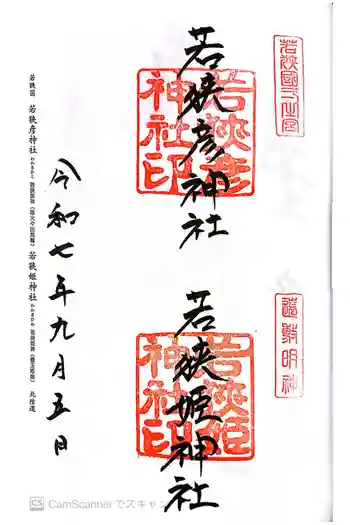 若狹國一之宮
若狹彦神社
若狹彦神社印
遠敷明神
若狹姫神社
若狹姫神社印
令和七年九月五日
若狭国 若狭彦神社 わかさひこ 若狭彦神(彦火々出見尊) 若狭姫神社 わかさひめ 若狭姫神(豊玉姫命) 北陸道
CS CamScannerでスキャン